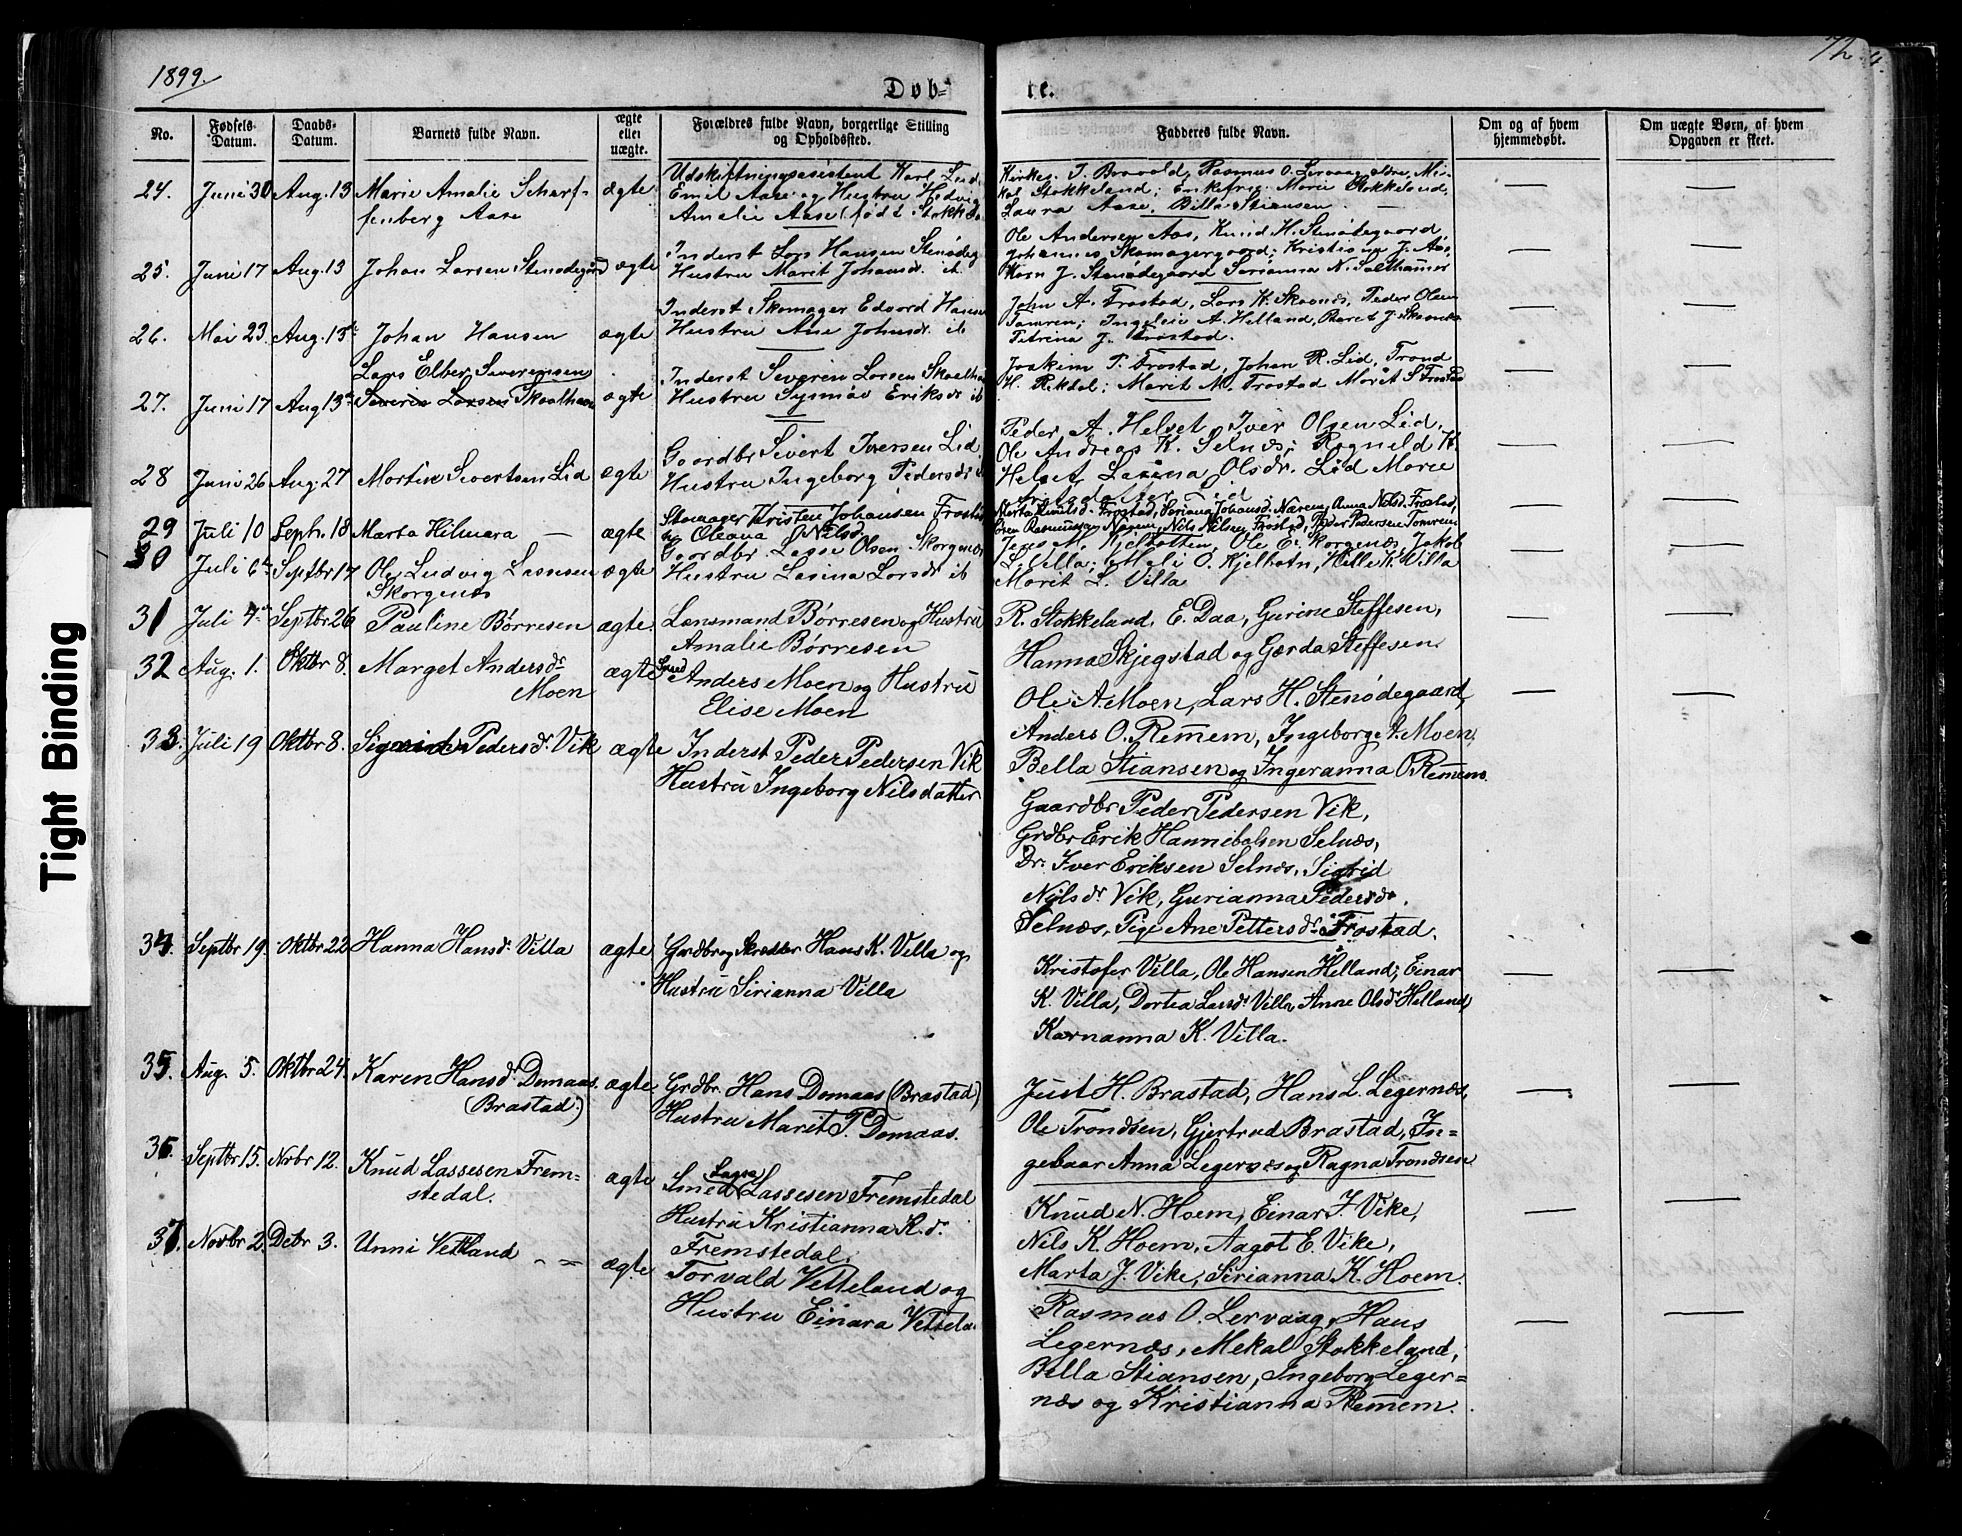 1899.
Døb-
te.
72
No.
Fødsels-
Datum.
Daabs-
Datum.
Barnets fulde Navn.
ægte
eller
uægte.
Forældres fulde Navn, borgerlige Stilling
og Opholdssted.
Fadderes fulde Navn.
Om og af hvem
hjemmedøbt.
Om uægte Børn, af hvem
Opgaven er skeet.
24. Juni 30 Aug. 13 Marie Amalie Scharf-
fenberg Aase
ægte
Udskiftningsassistent Karl
Emil Aase og Hustru Hedvig
Amalie Aase (født Stokke
Rasmus O. Lervaag
Stokkeland; Enkefru Marie Stokkeland,
Laura Aase, Billa Stiansen
25. Juni 17 Aug. 13 Johan Larsen Stenødegård ægte
Inderst Lars Hansen Stenødeg
Hustru Marit Johansdr. ib
Ole Andersen Aas, Knud H. Stenødegaard,
Johannes Skomagergaard; Kristianna J. Aas,
Karn J. Stenødegaard Serianna N. Salthammer
26. Mai 23 Aug. 13de Johan Hansen ægte
Inderst Skomager Edvard Hansen
Hustru Ane Johnsdr ib
John A. Frostad, Lars K. Skovnes, Peder Olsen
Tomren; Ingeleie A. Helland, Beret J. Skovnes
Petrina J. Frostad.
27. Juni 17 Aug 13de
Lars Elber Severinsen
Severin Larsen Skaalhavn
ægte
Inderst Severin Larsen Skaalha
Hustru Synnøv Eriksdr ib
Joakim T. Frostad, Johan R. Lid, Trond
H. Rekdal; Marit M. Frostad Marit S Frostad
28 Juni 26 Aug. 27 Martin Sivertsen Lid ægte
Gaardbr Sivert Iversen Lid
Hustru Ingeborg Pedersdr
Peder A. Helset Iver Olsen Lid,
Ole Andreas K. Selnæs; Rognild K.
Helset Lasina Olsdr. Lid Marie
29 Juli 10 Septr. 18 Marta Hilmara — ægte
Skomager Kristen Johansen Frostad
og Oleana Nilsd.
Frostad, Seriana Johansd. Nærem, Anna Nilsd. Frostad,
Søren Rasmussen Nærem, Nils Nilsen Frostad, Peder Pedersen Tomrem
30 Juli 6te Septbr 17 Ole Ludvig Lassesen
Skorgenæs
ægte
Gaardbr. Lasse Olsen Skorgenæs
Hustru Lasina Larsdr ib
Jens M. Kjelbotten, Ole E. Skorgenæs, Jakob
L. Villa; Mali O. Kjelbotn, Hille K. Villa
Marit L. Villa
31 Juli 4de Septbr 26 Pauline Børresen ægte.
Lensmand Børresen og Hustru
Amalie Børresen
R. Stokkeland, E. Daa, Gurine Steffesen,
Hanna Skjegstad og Gærda Steffesen.
32 Aug. 1. Oktbr 8. Marget Andersdr
Moen
ægte
Smed
Anders Moen og Hustru
Elise Moen
Ole A. Moen, Lars H. Stenødegaard,
Anders O. Remem, Ingeborg A. Moen,
Bella Stiansen og Ingeranna O. Remem.
33. Juli 19 Oktbr 8. Sigrid Pedersdr. Vik ægte
Inderst Peder Pedersen Vik
Hustru Ingeborg Nilsdatter
Gaardbr Peder Pedersen Vik,
Grdbr Erik Hannibalsen Selnæs,
Dr. Iver Eriksen Selnæs, Sigrid
Nilsdr Vik, Gurianna Pedersdr.
Selnæs, Pige Ane Pettersdr. Frostad.
34. Septbr 19. Oktbr 22 Hanna Hansdr Villa ægte
Grdbr og Skrædder Hans K. Villa og
Hustru Sirianna Villa
Kristofer Villa, Ole Hansen Helland, Einar
K. Villa, Dortea Larsdr Villa, Anne Olsdr Helland,
Karnanna K. Villa.
35. Aug. 5. Oktbr 24. Karen Hansdr Domaas.
(Brastad.)
ægte
Grdbr. Hans Domaas (Brastad)
Hustru Marit P. Domaas.
Just H. Brastad, Hans L. Legernæs,
Ole Trondsen, Gjertrud Brastad, In=
gebaar Anna Legernæs og Ragna Trondsen
36 Septbr 15. Novbr 12. Knud Lassesen Frem-
stedal.
ægte
Smed Lasse Lassesen Fremstedal
Hustru Kristianna K.dr.
Fremstedal.
Knud N. Hoem, Einar J. Vike,
Nils K. Hoem, Aagot E. Vike,
Marta J. Vike, Sirianna K. Hoem.
37. Novbr 2. Decbr 3. Unni Vetteland ægte
Torvald Vetteland og
Hustru Einara Vettela
Rasmus O. Lervaag, Hans
Legernæs, Mekal Stokkeland,
Bella Stiansen, Ingeborg Leger=
næs og Kristianna Remem.
Tight Binding